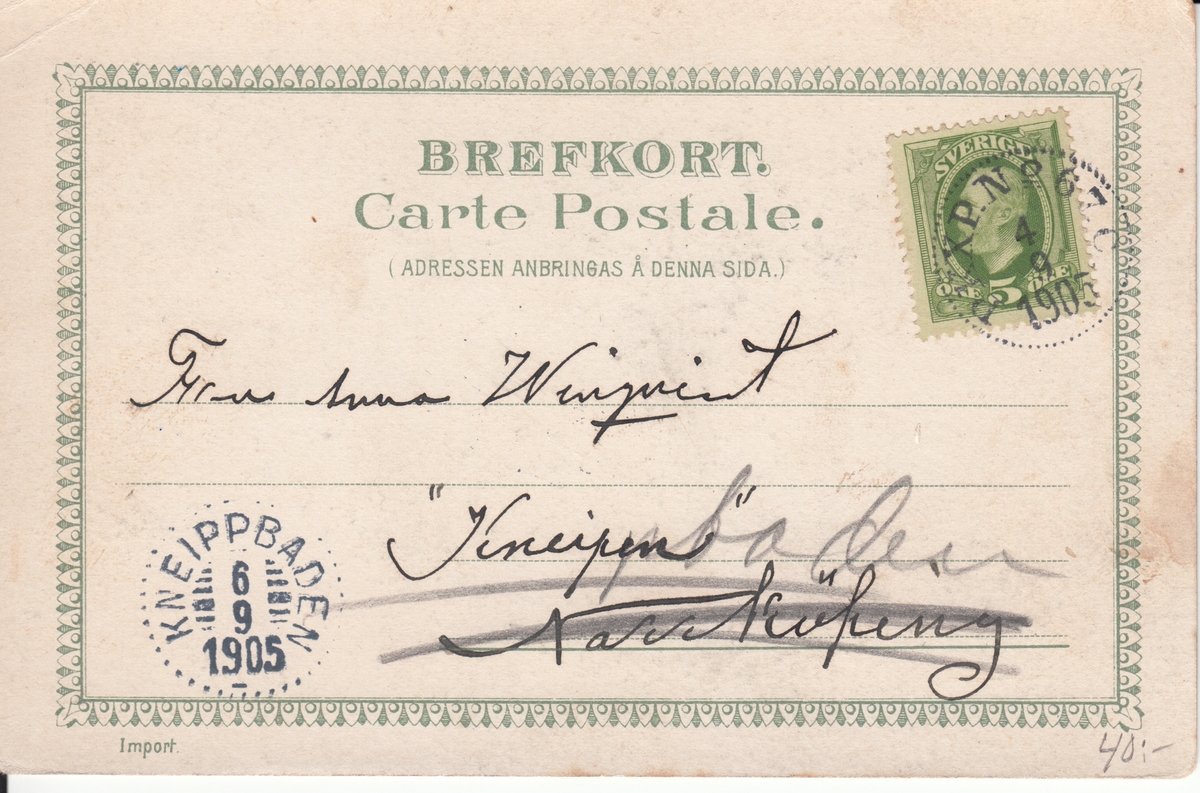 BREFKORT.
Carte Postale.
(ADRESSEN ANBRINGAS Å DENNA SIDA.)
SVERIGE
5
ÖRE
4
9
1905
Fru Anna Winqvist
"Kneipen" baden
Norrköping
KNEIPPBADEN
6
9
1905
Import.
40:-